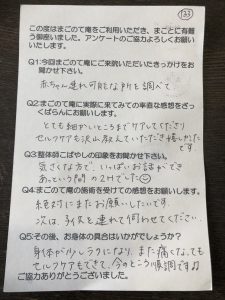 133
この度はまごのて庵をご利用いただき、まことに有難
う御座いました。アンケートのご協力よろしくお願い
いたします。
Q1:今回まごのて庵にご来院いただいたきっかけをお
聞かせ下さい。
赤ちゃん連れ可能な所を調べて
Q2:まごのて庵に実際に来てみての率直な感想をざっ
くばらんにお願いします。
とても細かいところまでケアしてくださり
セルフケアも沢山教えていただき嬉しかった
です
Q3:整体師こばやしの印象をお聞かせ下さい。
気さくな方で、いっぱいお話ができ
あっという間の2Hでした
Q4:まごのて庵の施術を受けての感想をお願いします。
絶対にまたお願いしたいです。
次は、子供を連れて伺わせてください。
Q5:その後、お身体の具合はいかがでしょうか?
身体が少しラクになり、また痛くなっても
セルフケアもできて、今のところ順調です!!
ご協力ありがとうございました。